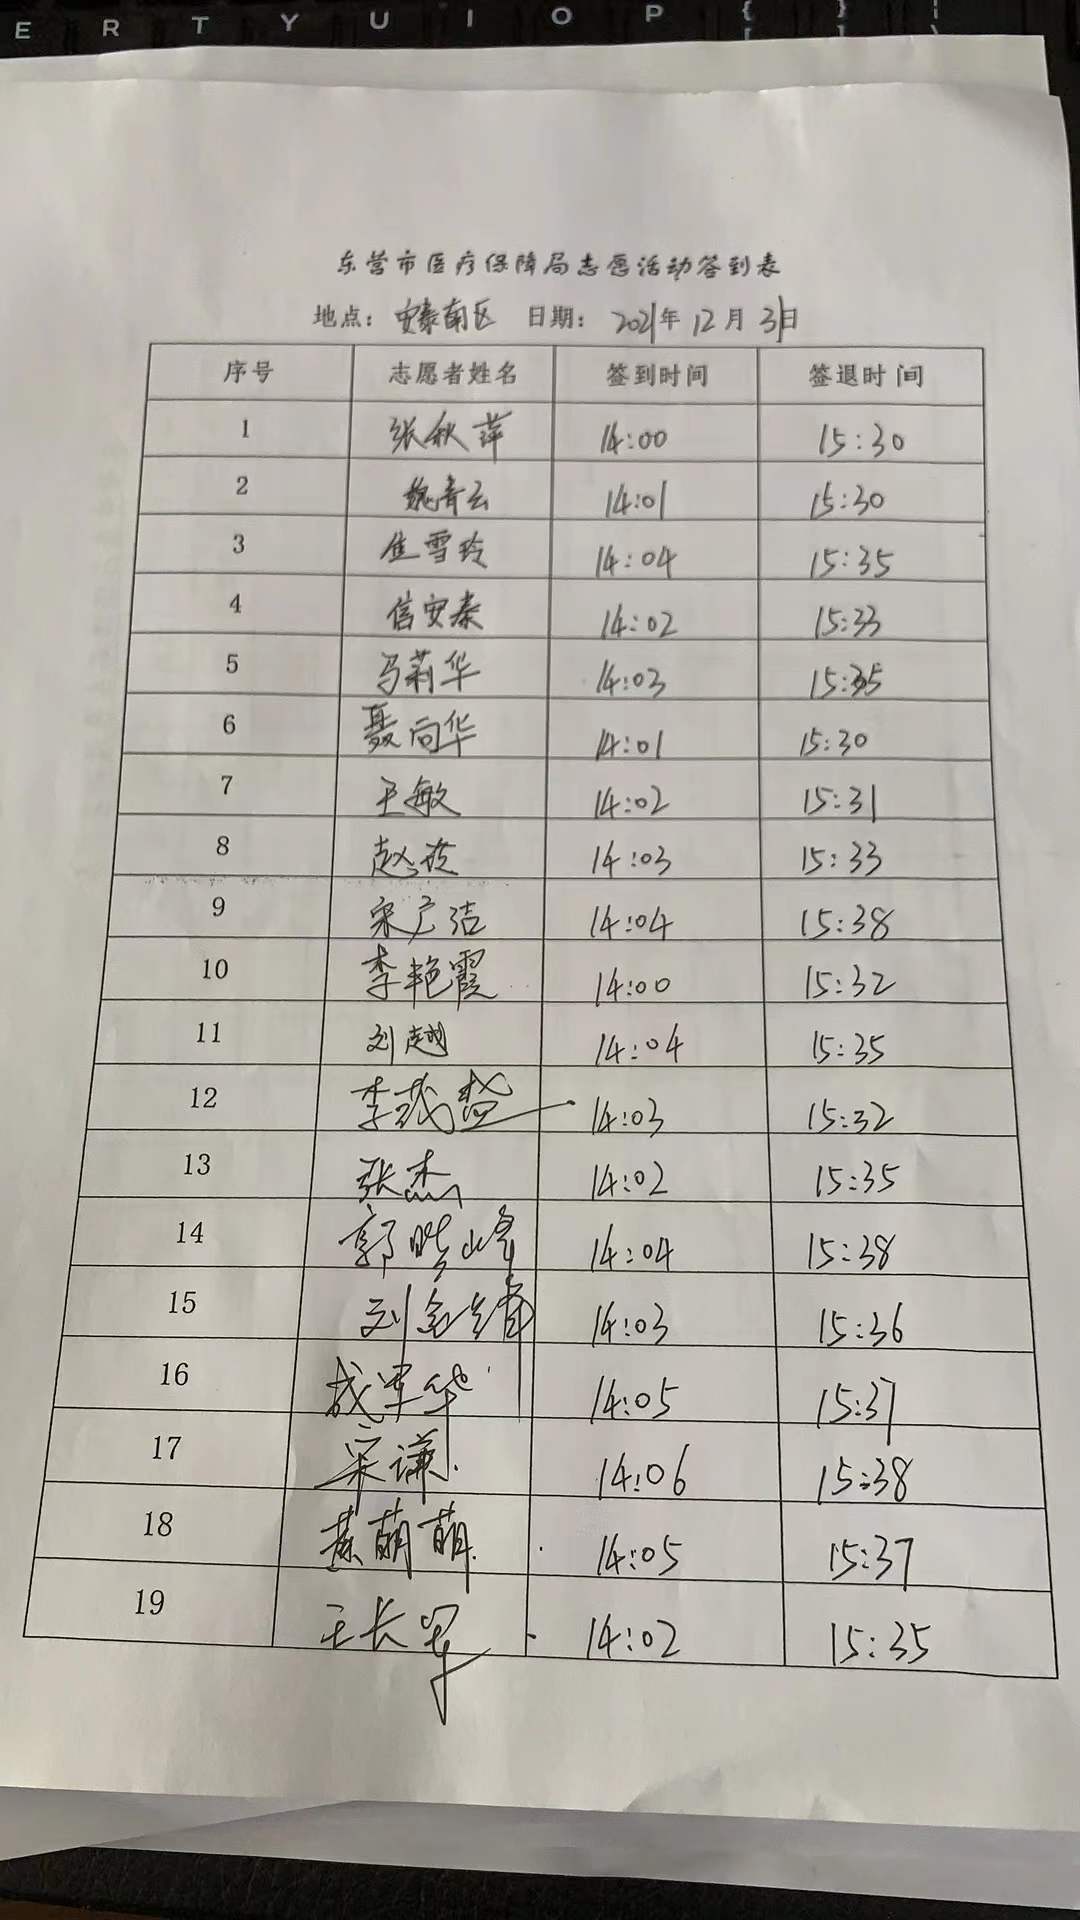 E R T Y U I O P { } |
[ ] \
东营市医疗保障局志愿活动签到表
地点：安泰南区 日期：2021年12月3日
序号 志愿者姓名 签到时间 签退时间
1 张秋萍 14:00 15:30
2 魏青云 14:01 15:30
3 焦雪玲 14:04 15:35
4 信安泰 14:02 15:33
5 马莉华 14:03 15:35
6 聂向华 14:01 15:30
7 王敏 14:02 15:31
8 赵 14:03 15:33
9 宋广洁 14:04 15:38
10 李艳霞 14:00 15:32
11 刘越 14:04 15:35
12 李 14:03 15:32
13 张杰 14:02 15:35
14 郭晓峰 14:04 15:38
15 刘 14:03 15:36
16 成军华 14:05 15:37
17 宋谦 14:06 15:38
18 黄萌萌 14:05 15:37
19 王长军 14:02 15:35